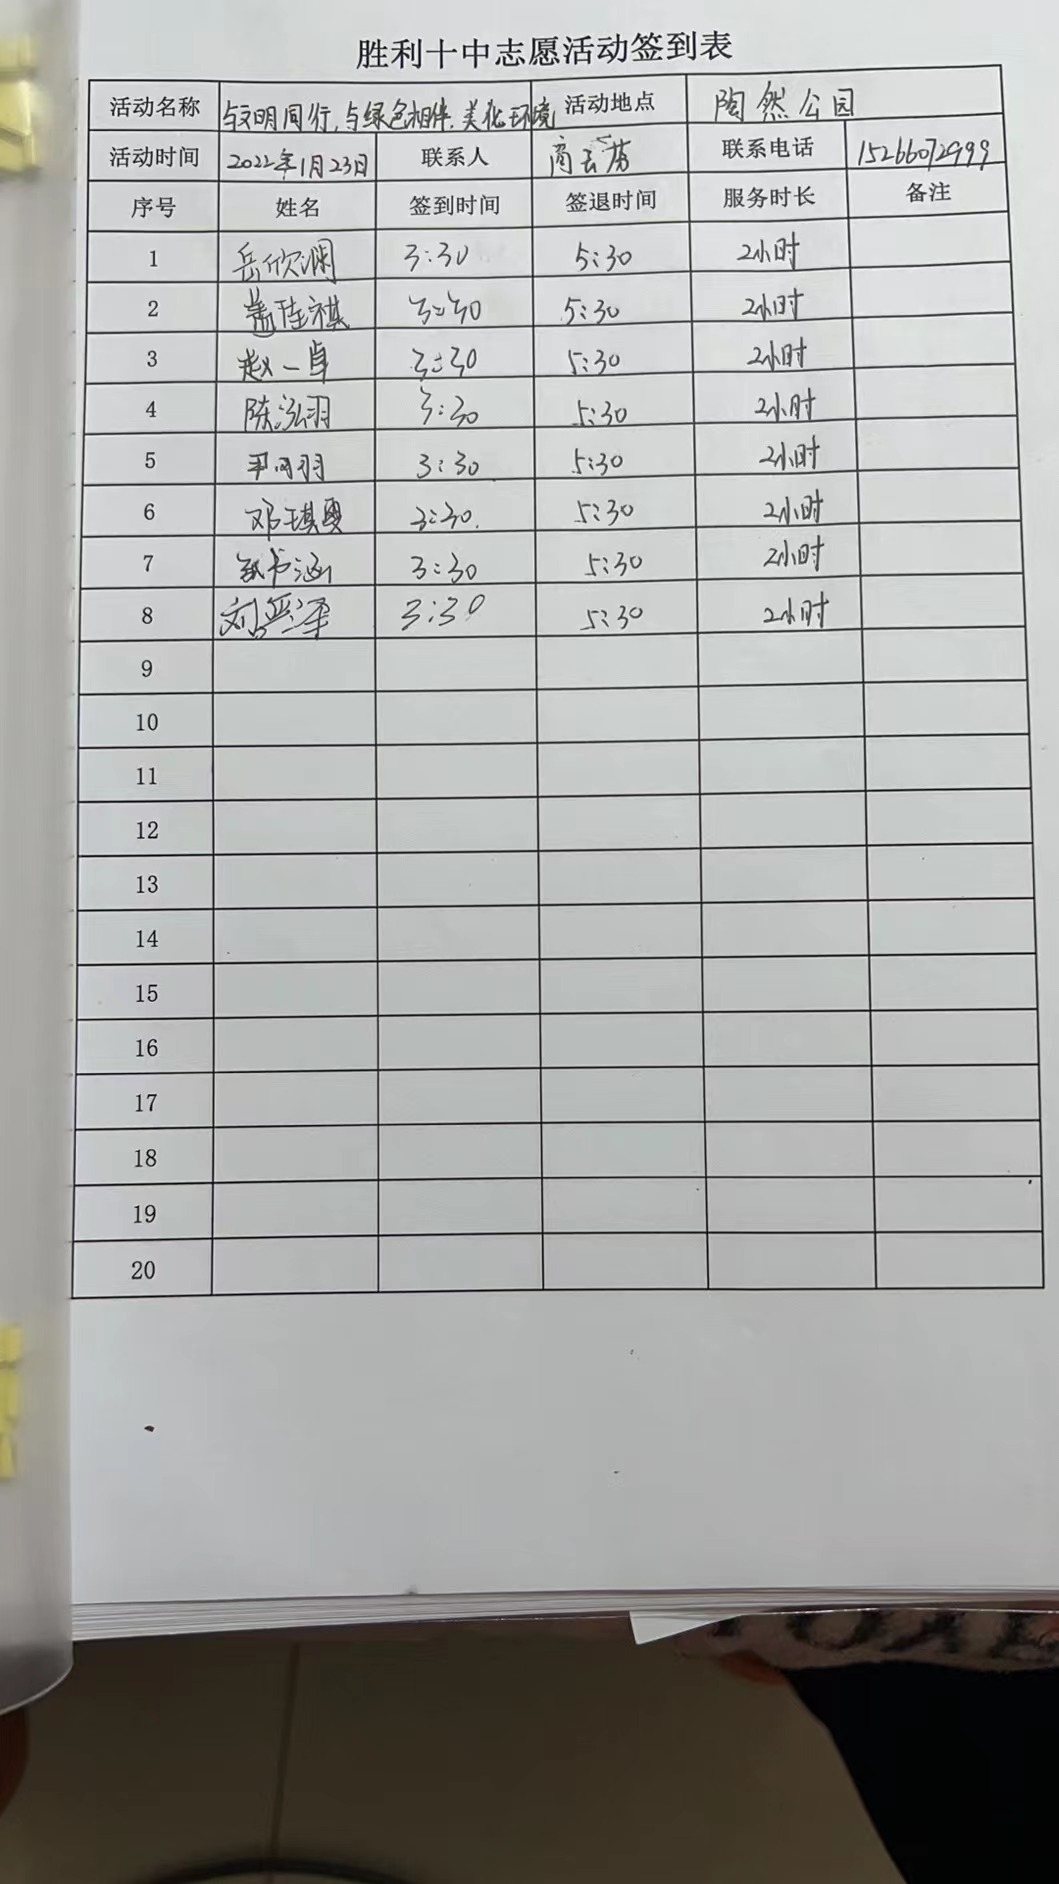 胜利十中志愿活动签到表
活动名称 与文明同行,与绿色相伴,美化环境 活动地点 陶然公园
活动时间 2022年1月23日 联系人 商云芳 联系电话 15266072999
序号 姓名 签到时间 签退时间 服务时长 备注
1 岳欣澜 3:30 5:30 2小时
2 盖佳祺 3:30 5:30 2小时
3 赵一卓 3:30 5:30 2小时
4 陈泓羽 3:30 5:30 2小时
5 3:30 5:30 2小时
6 邓琪 3:30 5:30 2小时
7 书涵 3:30 5:30 2小时
8 刘 泽 3:30 5:30 2小时
9
10
11
12
13
14
15
16
17
18
19
20